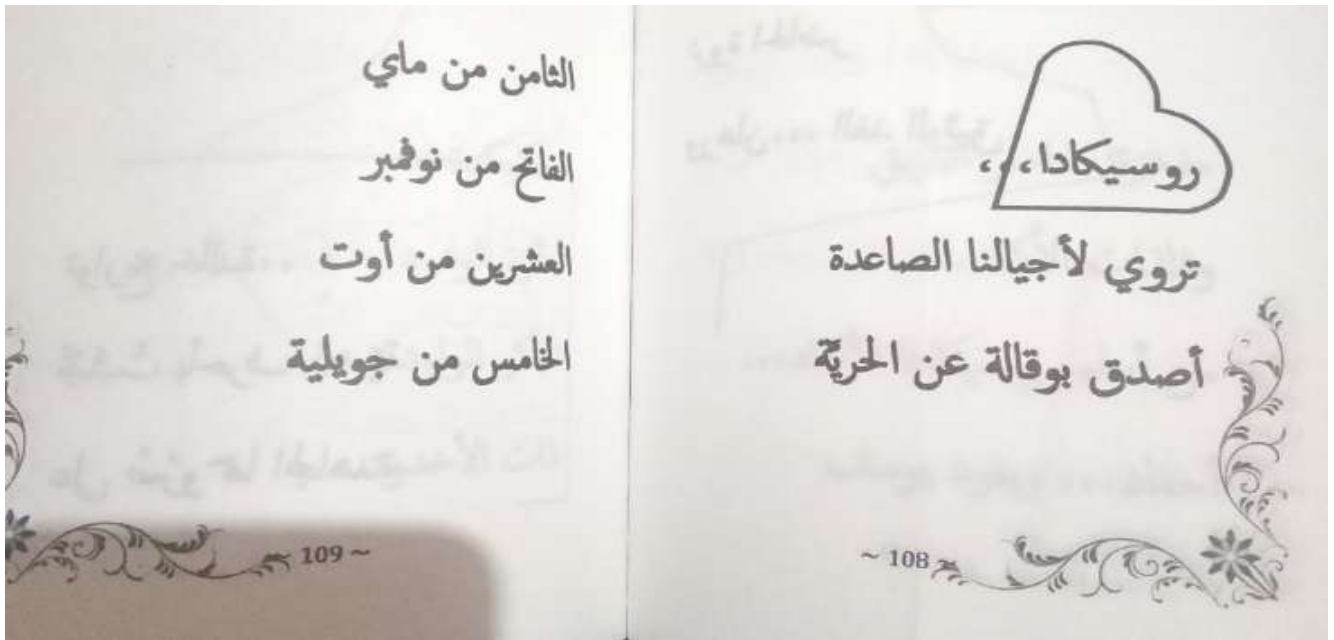 روسيكادا،،،
تروي لأجيالنا الصاعدة
أصدق بوقالة عن الحريّة
~ 108 ~
الثامن من ماي
الفاتح من نوفمبر
العشرين من أوت
الخامس من جويلية
~ 109 ~